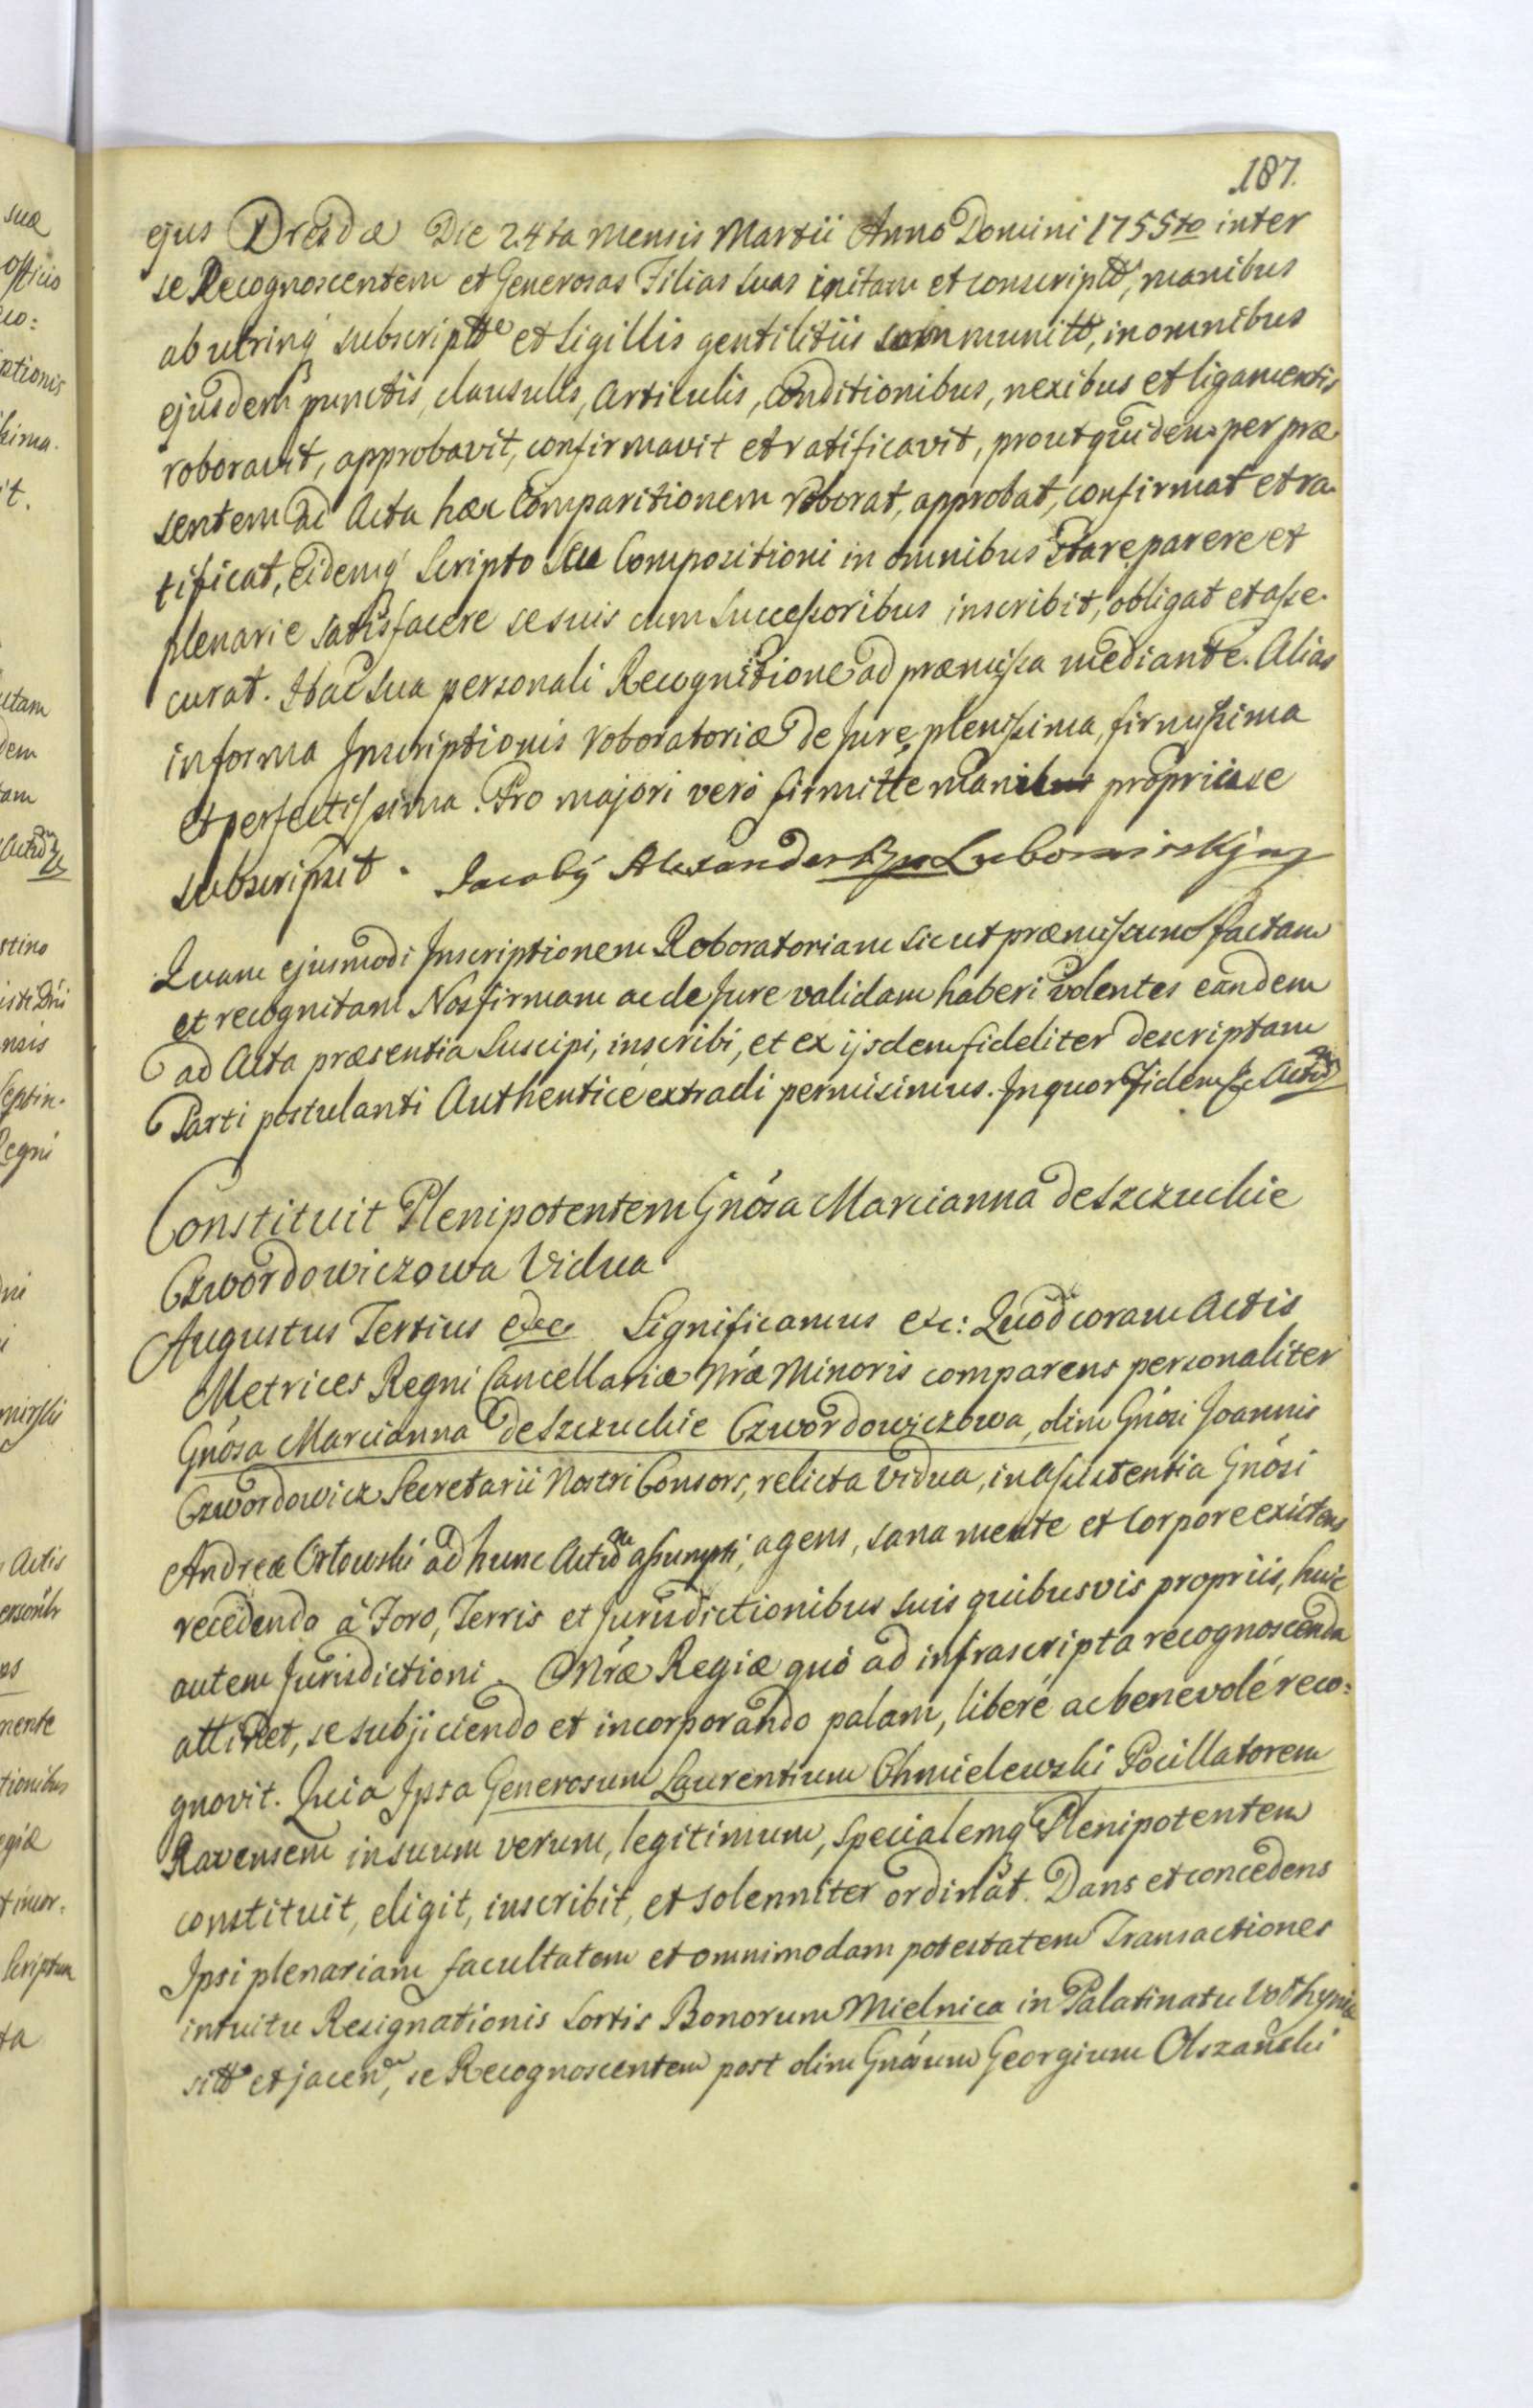 187.
ejus Dresdæ Die 24ta mensis Martii Anno Domini 1755to inter
se Recognoscentem et Generosas Filias suas initam et conscriptã, manibus
ab utrinq́ subscriptã et Sigillis gentilitiis communitã, in omnibus
ejusdem punctis, clausulis, Articulis, Conditionibus, nexibus et ligamentis
roboravit, approbavit, confirmavit et ratificavit, prout quidem per præ
sentem ad Acta hæc Comparitionem roborat, approbat, confirmat et ra-
tificat, eidemq́ Scripto seu Compositioni in omnibus stare, parere et
plenarie satisfacere se suis cum Successoribus inscribit, obligat et asse-
curat. Hac sua personali Recognitione ad præmissa mediante. Alias
in forma Inscriptionis roboratoriæ de Jure plenissima, firmissima
et perfectissima. Pro majori verò firmitte manu propria se
subscripsit. Jacobg Alexander Lubomirskj mp
Quam ejusmodi Inscriptionem Roboratoriam sic ut præmissum factam
et recognitam Nos firmam ac de Jure validam haberi volentes eandem
ad Acta præsentia Suscipi, inscribi, et ex ijsdem fideliter descriptam
Parti postulanti Authenticè extradi permisimus. In quor Fidem &c Actũ
Constituit Plenipotentem Gnósa Marcianna de Szczuckie
Czwordowiczowa Vidua
Augustus Tertius etc. Significamus etc: Quod coram Actis
Metrices Regni Cancellariæ Nræ Minoris comparens personaliter
Gnósa Marcianna de Szczuckie Czwordowiczowa, olim Gnósi Joannis
Czwordowicz Secretarii Nostri Consors, relicta Vidua, in assistentia Gnósi
Andreæ Orłowski ad hunc Actũ assumpti, agens, sana mente et corpore existens
recedendo à Foro, Terris et Jurisdictionibus suis quibusvis propriis, huic
autem Jurisdictioni Nræ Regiæ quò ad infrascripta recognoscenda
attinet, se subjiciendo et incorporando palam, liberè ac benevolè reco=
gnovit. Quia Ipsa Generosum Laurentium Chmielewski Pocillatorem
Ravensem in suum verum, legitimum, specialemq Plenipotentem
constituit, eligit, inscribit, et solenniter ordinat. Dans et concedens
Ipsi plenariam facultatem et omnimodam potestatem Transactiones
intuitu Resignationis Sortis Bonorum Mielnica in Palatinatu Volhyniæ
sitã et jacen, se Recognoscentem post olim Gnósum Georgium Olszański